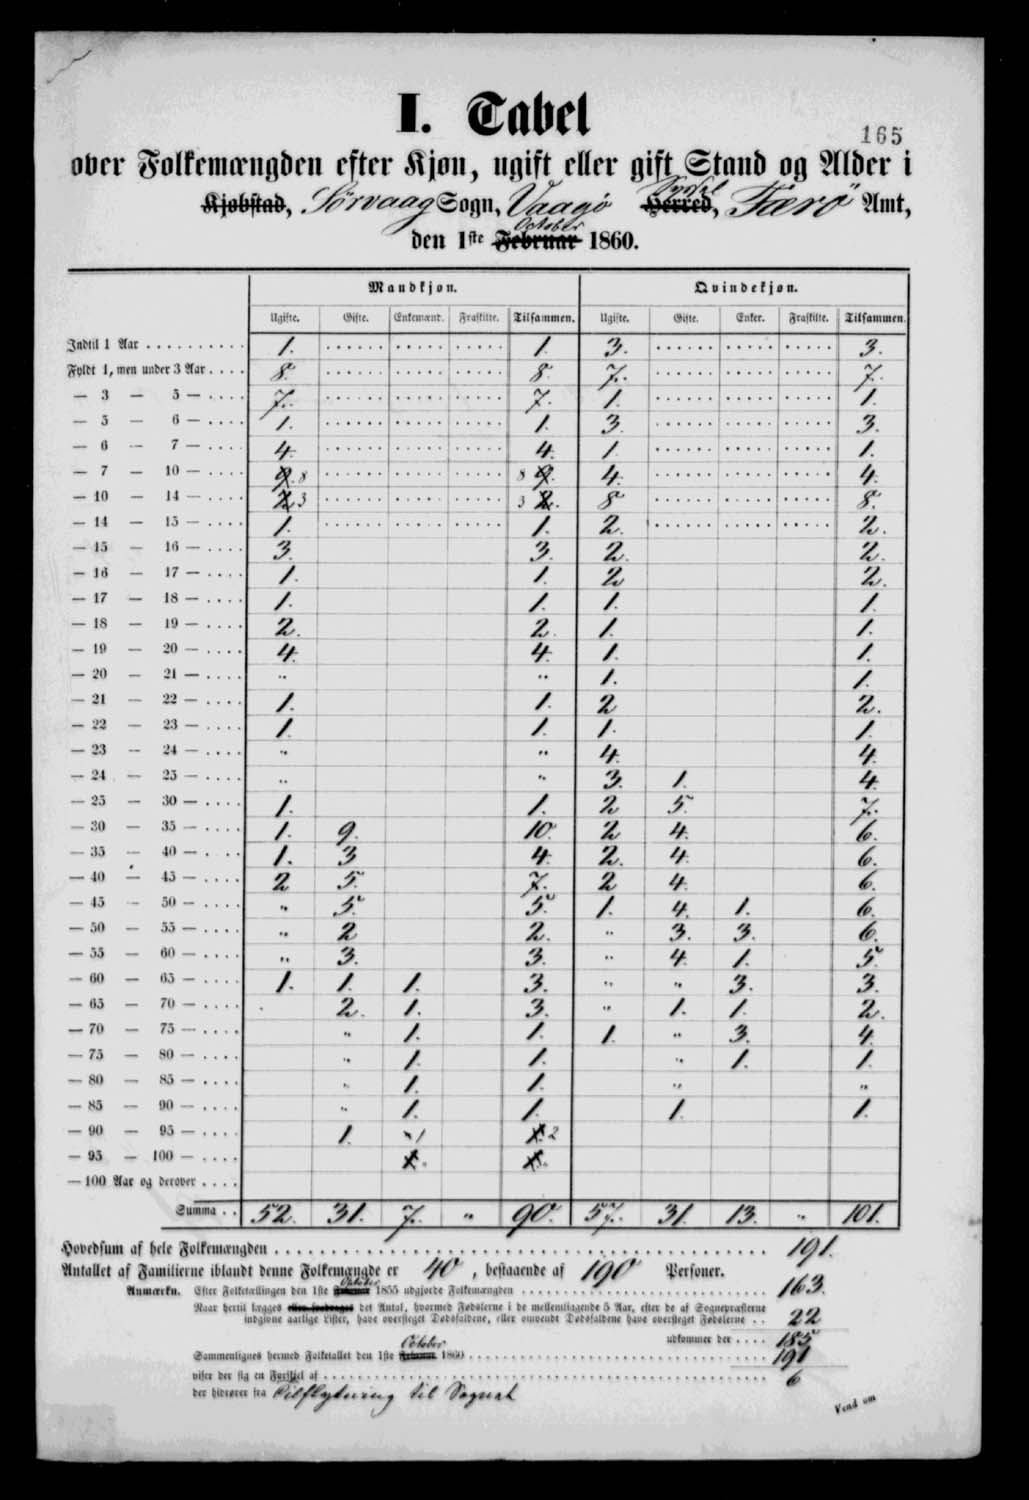 165
I. Tabel
over Folkemængden efter Kjøn, ugift eller gift Stand og Alder i
Kjøbstad, Sörvaag Sogn, Vaagö Herred, Syssel Færö Amt,
den 1ste Februar October 1860.
Mandkjøn. Qvindekjøn.
Ugifte. Gifte. Enkemænd. Fraskilte. Tilsammen. Ugifte. Gifte. Enker. Fraskilte. Tilsammen.
Indtil 1 Aar . . . . . . . . . . 1. 1. 3. 3.
Fyldt 1, men under 3 Aar . . . . 8. 8. 7. 7.
— 3 — 5 — . . . . 7. 7. 1. 1.
— 5 — 6 — . . . . 1. 1. 3. 3.
— 6 — 7 — . . . . 4. 4. 1. 1.
— 7 — 10 — . . . . 9. 8 8 9. 4. 4.
— 10 — 14 — . . . . 2 3 3 2. 8 8.
— 14 — 15 — . . . . 1. 1. 2. 2.
— 15 — 16 — . . . . 3. 3. 2. 2.
— 16 — 17 — . . . . 1. 1. 2 2.
— 17 — 18 — . . . . 1. 1. 1. 1.
— 18 — 19 — . . . . 2. 2. 1. 1.
— 19 — 20 — . . . . 4. 4. 1. 1.
— 20 — 21 — . . . . " " 1. 1.
— 21 — 22 — . . . . 1. 1. 2 2.
— 22 — 23 — . . . . 1. 1. 1. 1.
— 23 — 24 — . . . . " " 4. 4.
— 24 — 25 — . . . . " " 3. 1. 4.
— 25 — 30 — . . . . 1. 1. 2 5. 7.
— 30 — 35 — . . . . 1. 9. 10. 2 4. 6.
— 35 — 40 — . . . . 1. 3 4. 2. 4. 6.
— 40 — 45 — . . . . 2 5. 7. 2 4. 6.
— 45 — 50 — . . . . " 5. 5. 1. 4. 1. 6.
— 50 — 55 — . . . . " 2 2. " 3. 3. 6.
— 55 — 60 — . . . . " 3. 3. " 4. 1. 5.
— 60 — 65 — . . . . 1. 1. 1. 3. " " 3. 3.
— 65 — 70 — . . . . 2. 1. 3. " 1. 1. 2.
— 70 — 75 — . . . . " 1. 1. 1. " 3. 4.
— 75 — 80 — . . . . " 1. 1. " 1. 1.
— 80 — 85 — . . . . " 1. 1. " "
— 85 — 90 — . . . . " 1. 1. 1. 1.
— 90 — 95 — . . . . 1. " 1 1. 2
— 95 — 100 — . . . . 1. " 1. "
— 100 Aar og derover . . . .
Summa . . 52. 31. 7. " 90. 57. 31. 13. " 101.
Hovedsum af hele Folkemængden . . . . 191.
Antallet af Familierne iblandt denne Folkemængde er 40, bestaaende af 190 Personer.
Anmærkn. Efter Folketællingen den 1ste Februar October 1855 udgjorde Folkemængden . . . . 163.
Naar hertil lægges eller fradrages det Antal, hvormed Fødslerne i de mellemliggende 5 Aar, efter de af Sognepræsterne
indgivne aarlige Lister, have oversteget Dødsfaldene, eller omvendt Dødsfaldene have oversteget Fødslerne . . 22
udkommer der . . . . 185
Sammenlignes hermed Folketallet den 1ste Februar October 1860 . . . . 191
viser der sig en Forskjel af . . . . 6
der hidrører fra Tilflytning til Sognet
Vend om